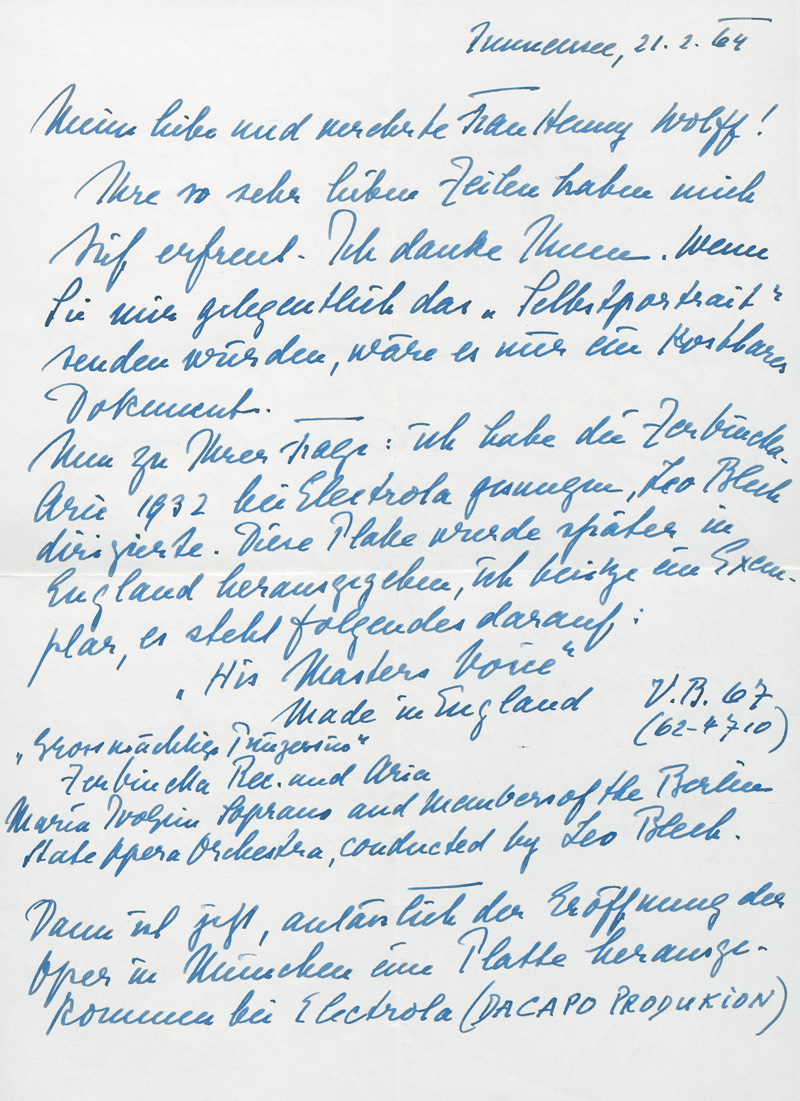 Immensee, 21. 2. 64
Meine liebe und verehrte Frau Henny Wolff!
Ihre so sehr lieben Zeilen haben mich
tief erfreut. Ich danke Ihnen. Wenn
Sie mir gelegentlich das „Selbstportrait"
senden würden, wäre es mir ein Kostbares
Dokument.
Nun zu Ihrer Frage: ich habe die Zerbinetta-
Arie 1932 bei Electrola gesungen, Leo Blech
dirigierte. Diese Platte wurde später in
England herausgegeben, ich besitze ein Exem-
plar, es steht folgendes darauf:
„His Masters Voice"
Made in England V.B. 67
(62-4710)
„Grossmächtige Prinzessin"
Zerbinetta Rec. und Aria
Maria Ivogün Soprano and members of the Berlin
State Opera Orchestra, conducted by Leo Blech.
Dann ist jetzt, anlässlich der Eröffnung der
Oper in München eine Platte herausge-
kommen bei Electrola (DACAPO PRODUKION)